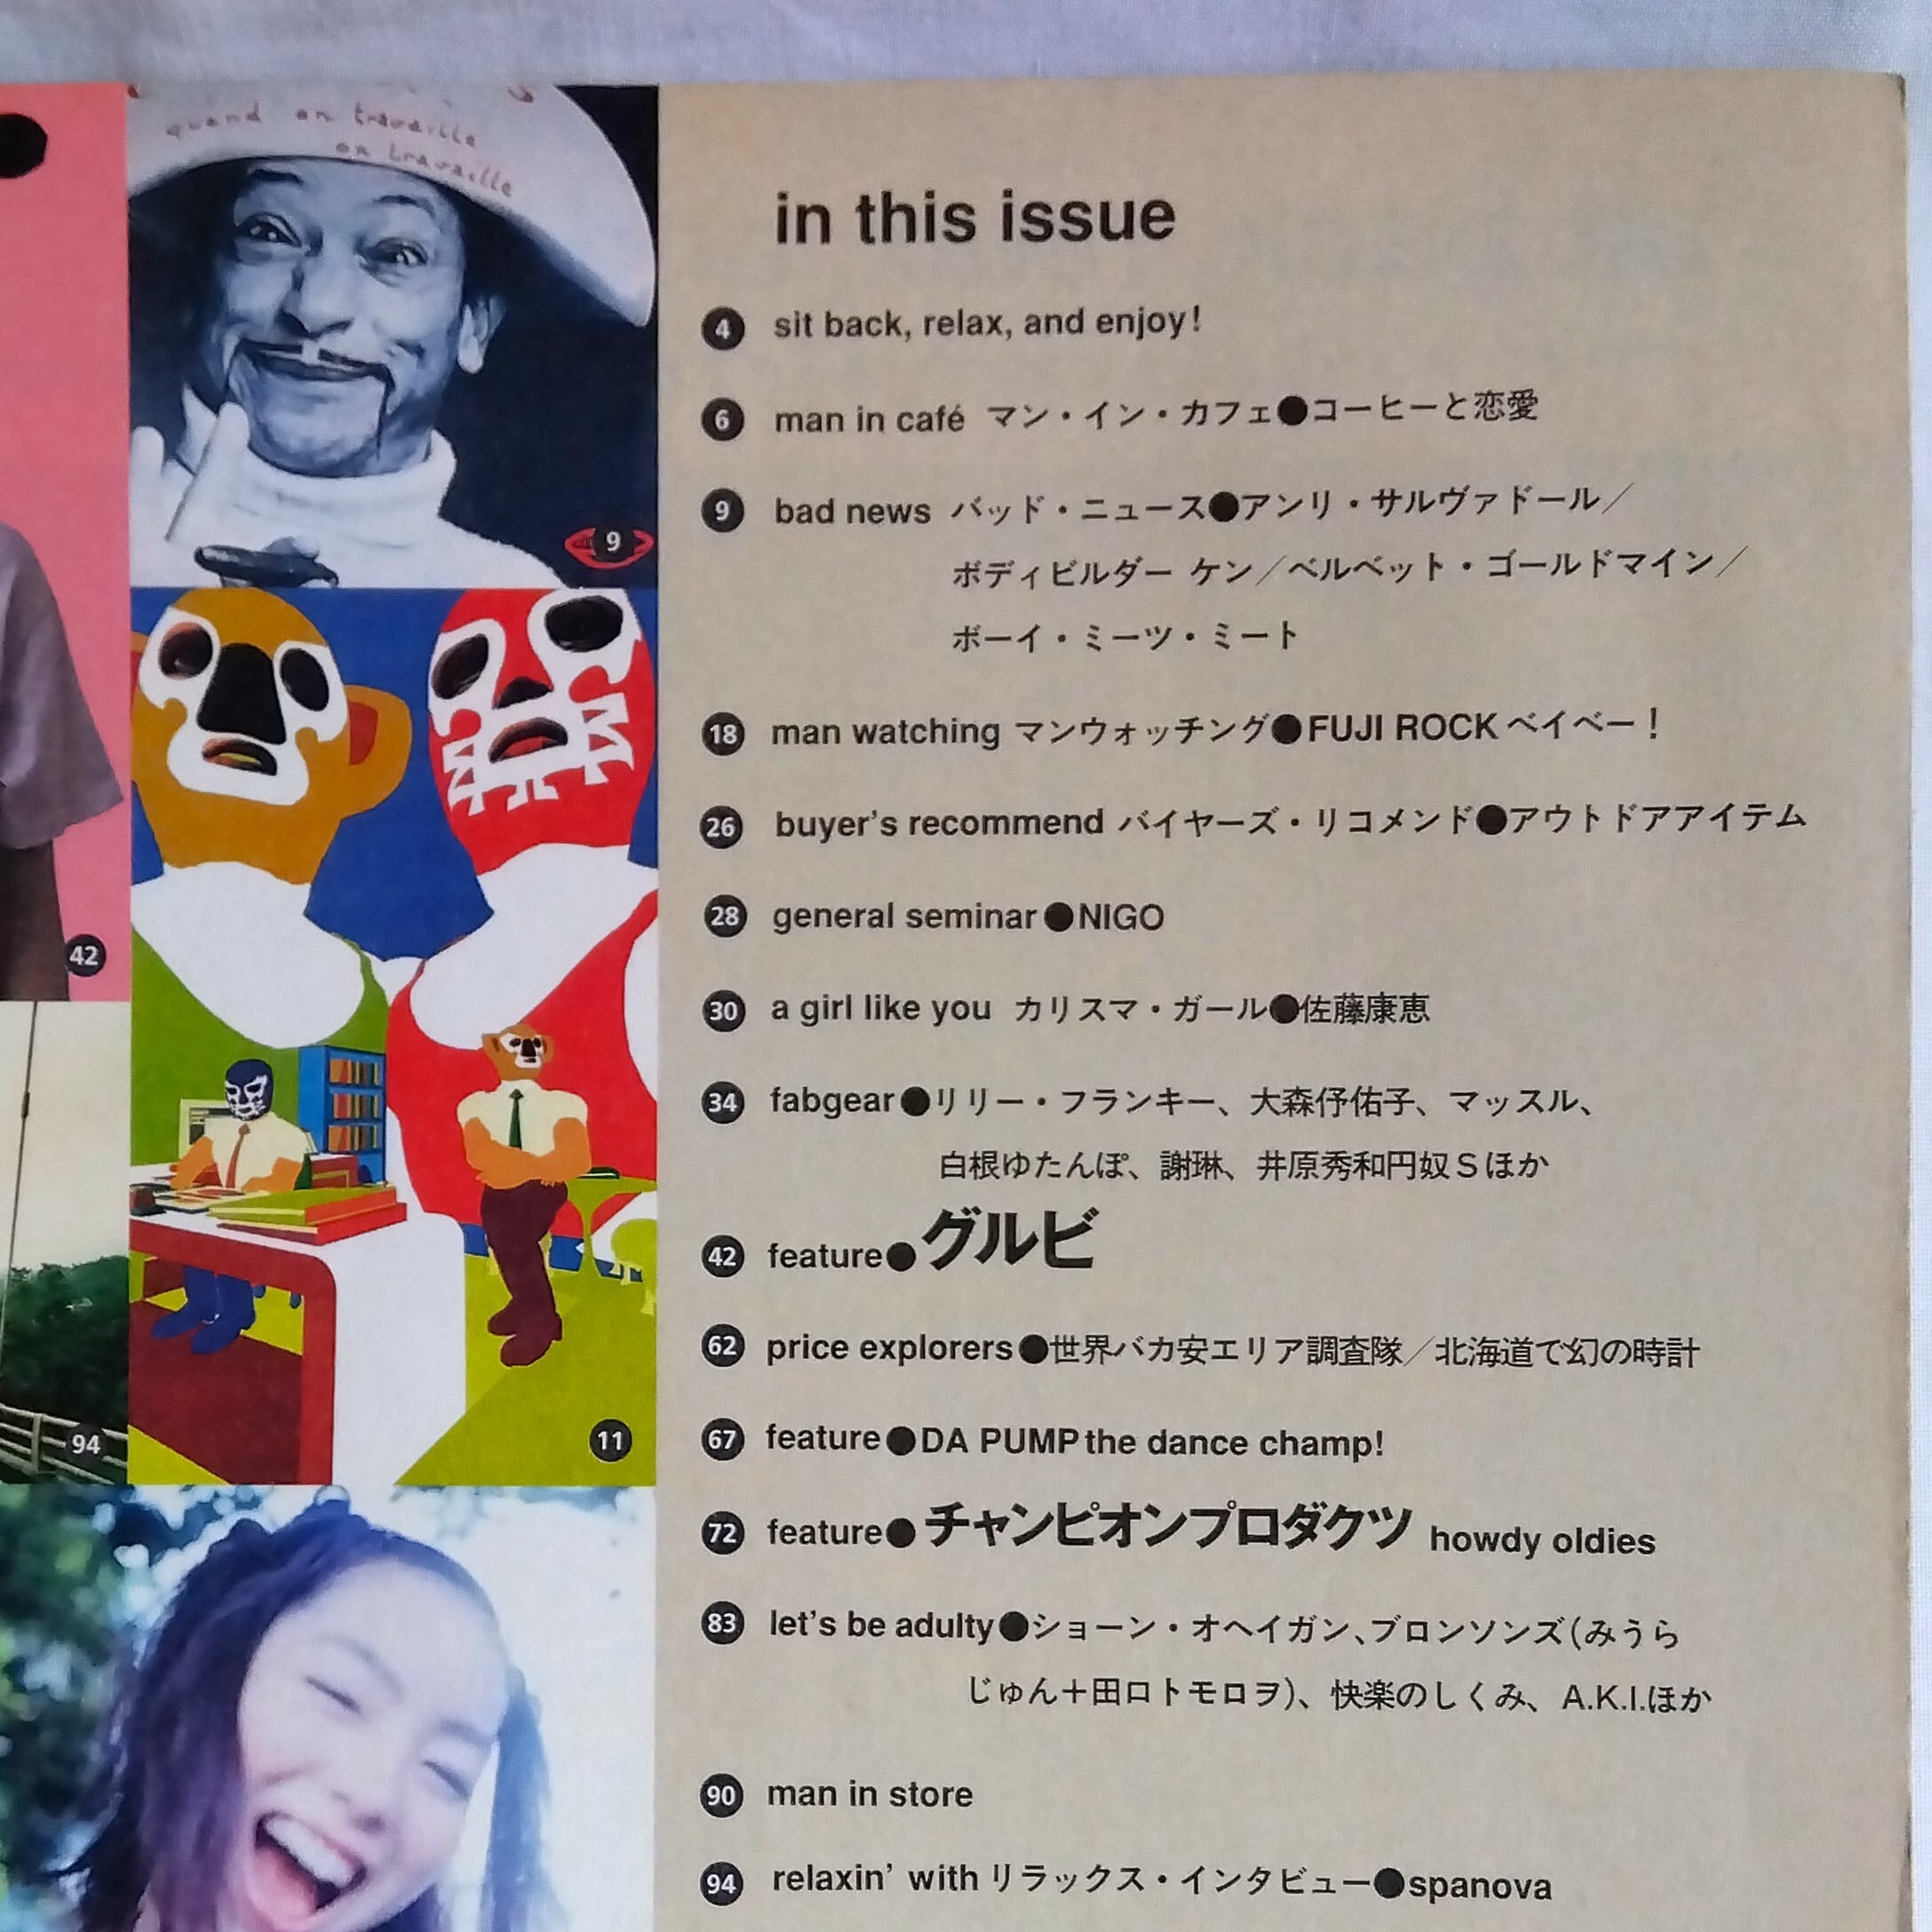 quand on travaille
on travaille
9
42
94
11
in this issue
4 sit back, relax, and enjoy!
6 man in café マン・イン・カフェ●コーヒーと恋愛
9 bad news バッド・ニュース●アンリ・サルヴァドール／
ボディビルダー ケン／ベルベット・ゴールドマイン／
ボーイ・ミーツ・ミート
18 man watching マンウォッチング●FUJI ROCK ベイベー！
26 buyer's recommend バイヤーズ・リコメンド●アウトドアアイテム
28 general seminar●NIGO
30 a girl like you カリスマ・ガール●佐藤康恵
34 fabgear●リリー・フランキー、大森伃佑子、マッスル、
白根ゆたんぽ、謝琳、井原秀和円奴Sほか
42 feature●グルビ
62 price explorers●世界バカ安エリア調査隊／北海道で幻の時計
67 feature●DA PUMP the dance champ!
72 feature●チャンピオンプロダクツ howdy oldies
83 let's be adulty●ショーン・オヘイガン、ブロンソンズ(みうら
じゅん＋田口トモロヲ)、快楽のしくみ、A.K.I.ほか
90 man in store
94 relaxin' with リラックス・インタビュー●spanova